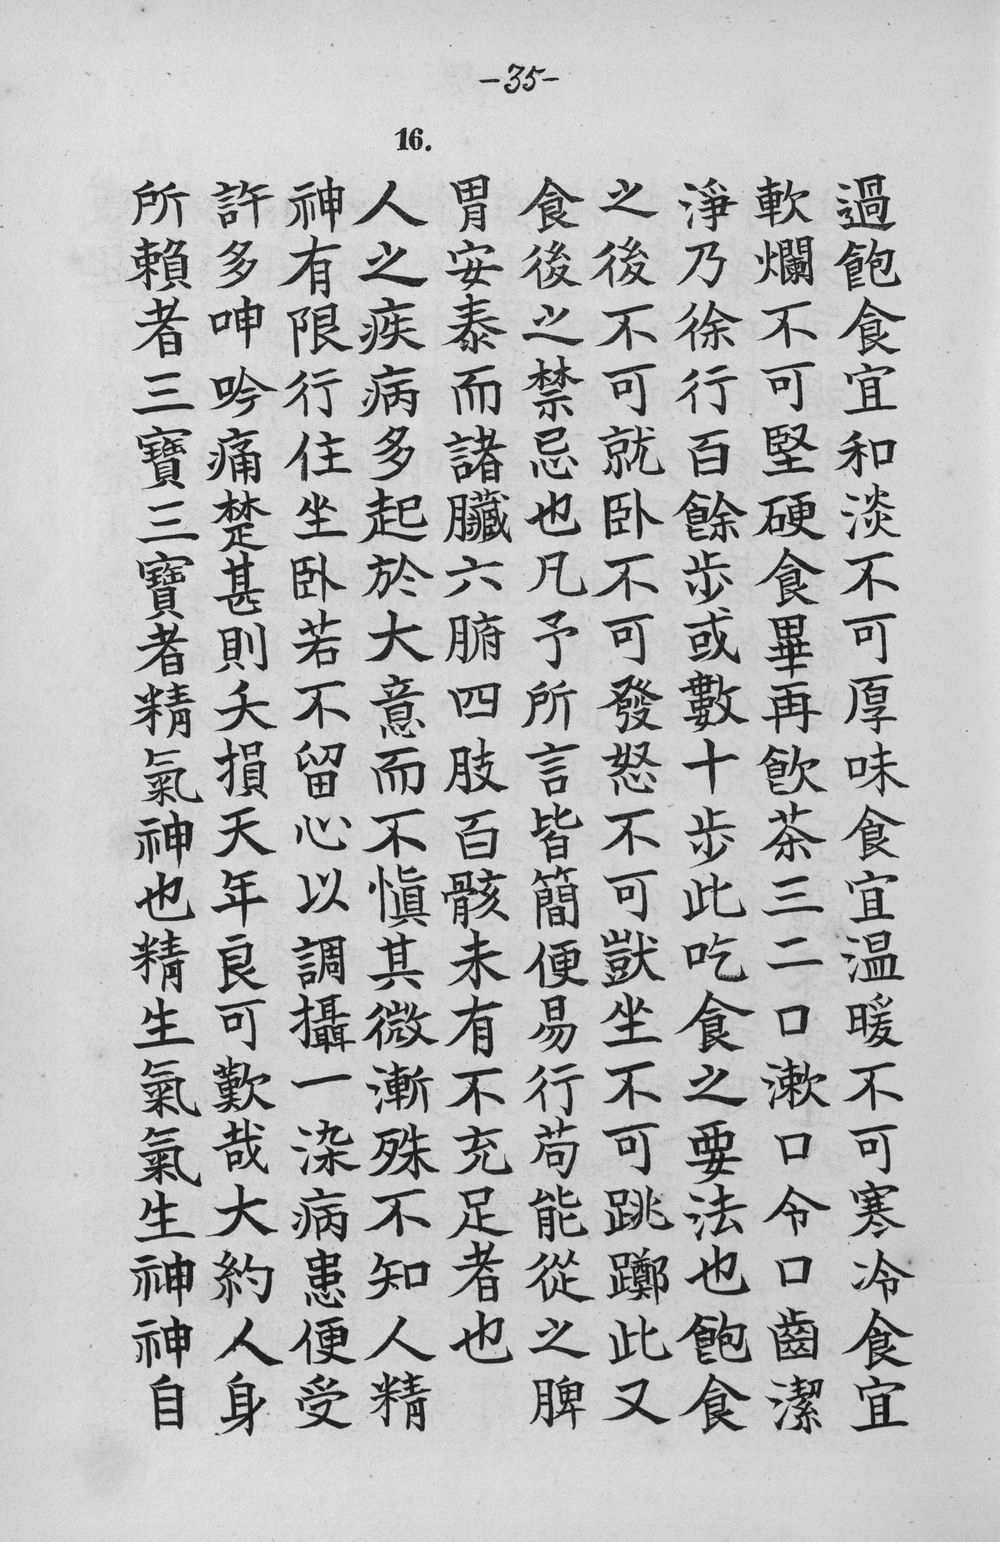 -35-
16.
過飽食宜和淡不可厚味食宜温暖不可寒冷食宜
軟爛不可堅硬食畢再飲茶三二口漱口令口齒潔
淨乃徐行百餘步或數十步此吃食之要法也飽食
之後不可就卧不可發怒不可獃坐不可跳躑此又
食後之禁忌也凡予所言皆簡便易行苟能從之脾
胃安泰而諸臟六腑四肢百骸未有不充足者也
人之疾病多起於大意而不慎其微漸殊不知人精
神有限行住坐卧若不留心以調攝一染病患便受
許多呻吟痛楚甚則夭損天年良可歎哉大約人身
所賴者三寶三寶者精氣神也精生氣氣生神神自